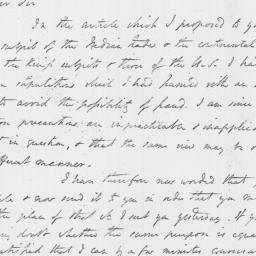 Sir
In the article which I proposed to yo
subject of the Indian trade & the continental
the King's subjects & those of the U.S. I ha
stipulations which I had framed with an
to avoid the possibility of fraud. I am since
precautions are impracticable & inapplica
in question, & that the same view may be o
different manner.
I have therefore new worded that
& now send it to you in order that you m
the place of that wh I sent you yesterday. If yo
any doubt whether the same purpose is equa
satisfied that I can by a few minutes conversa